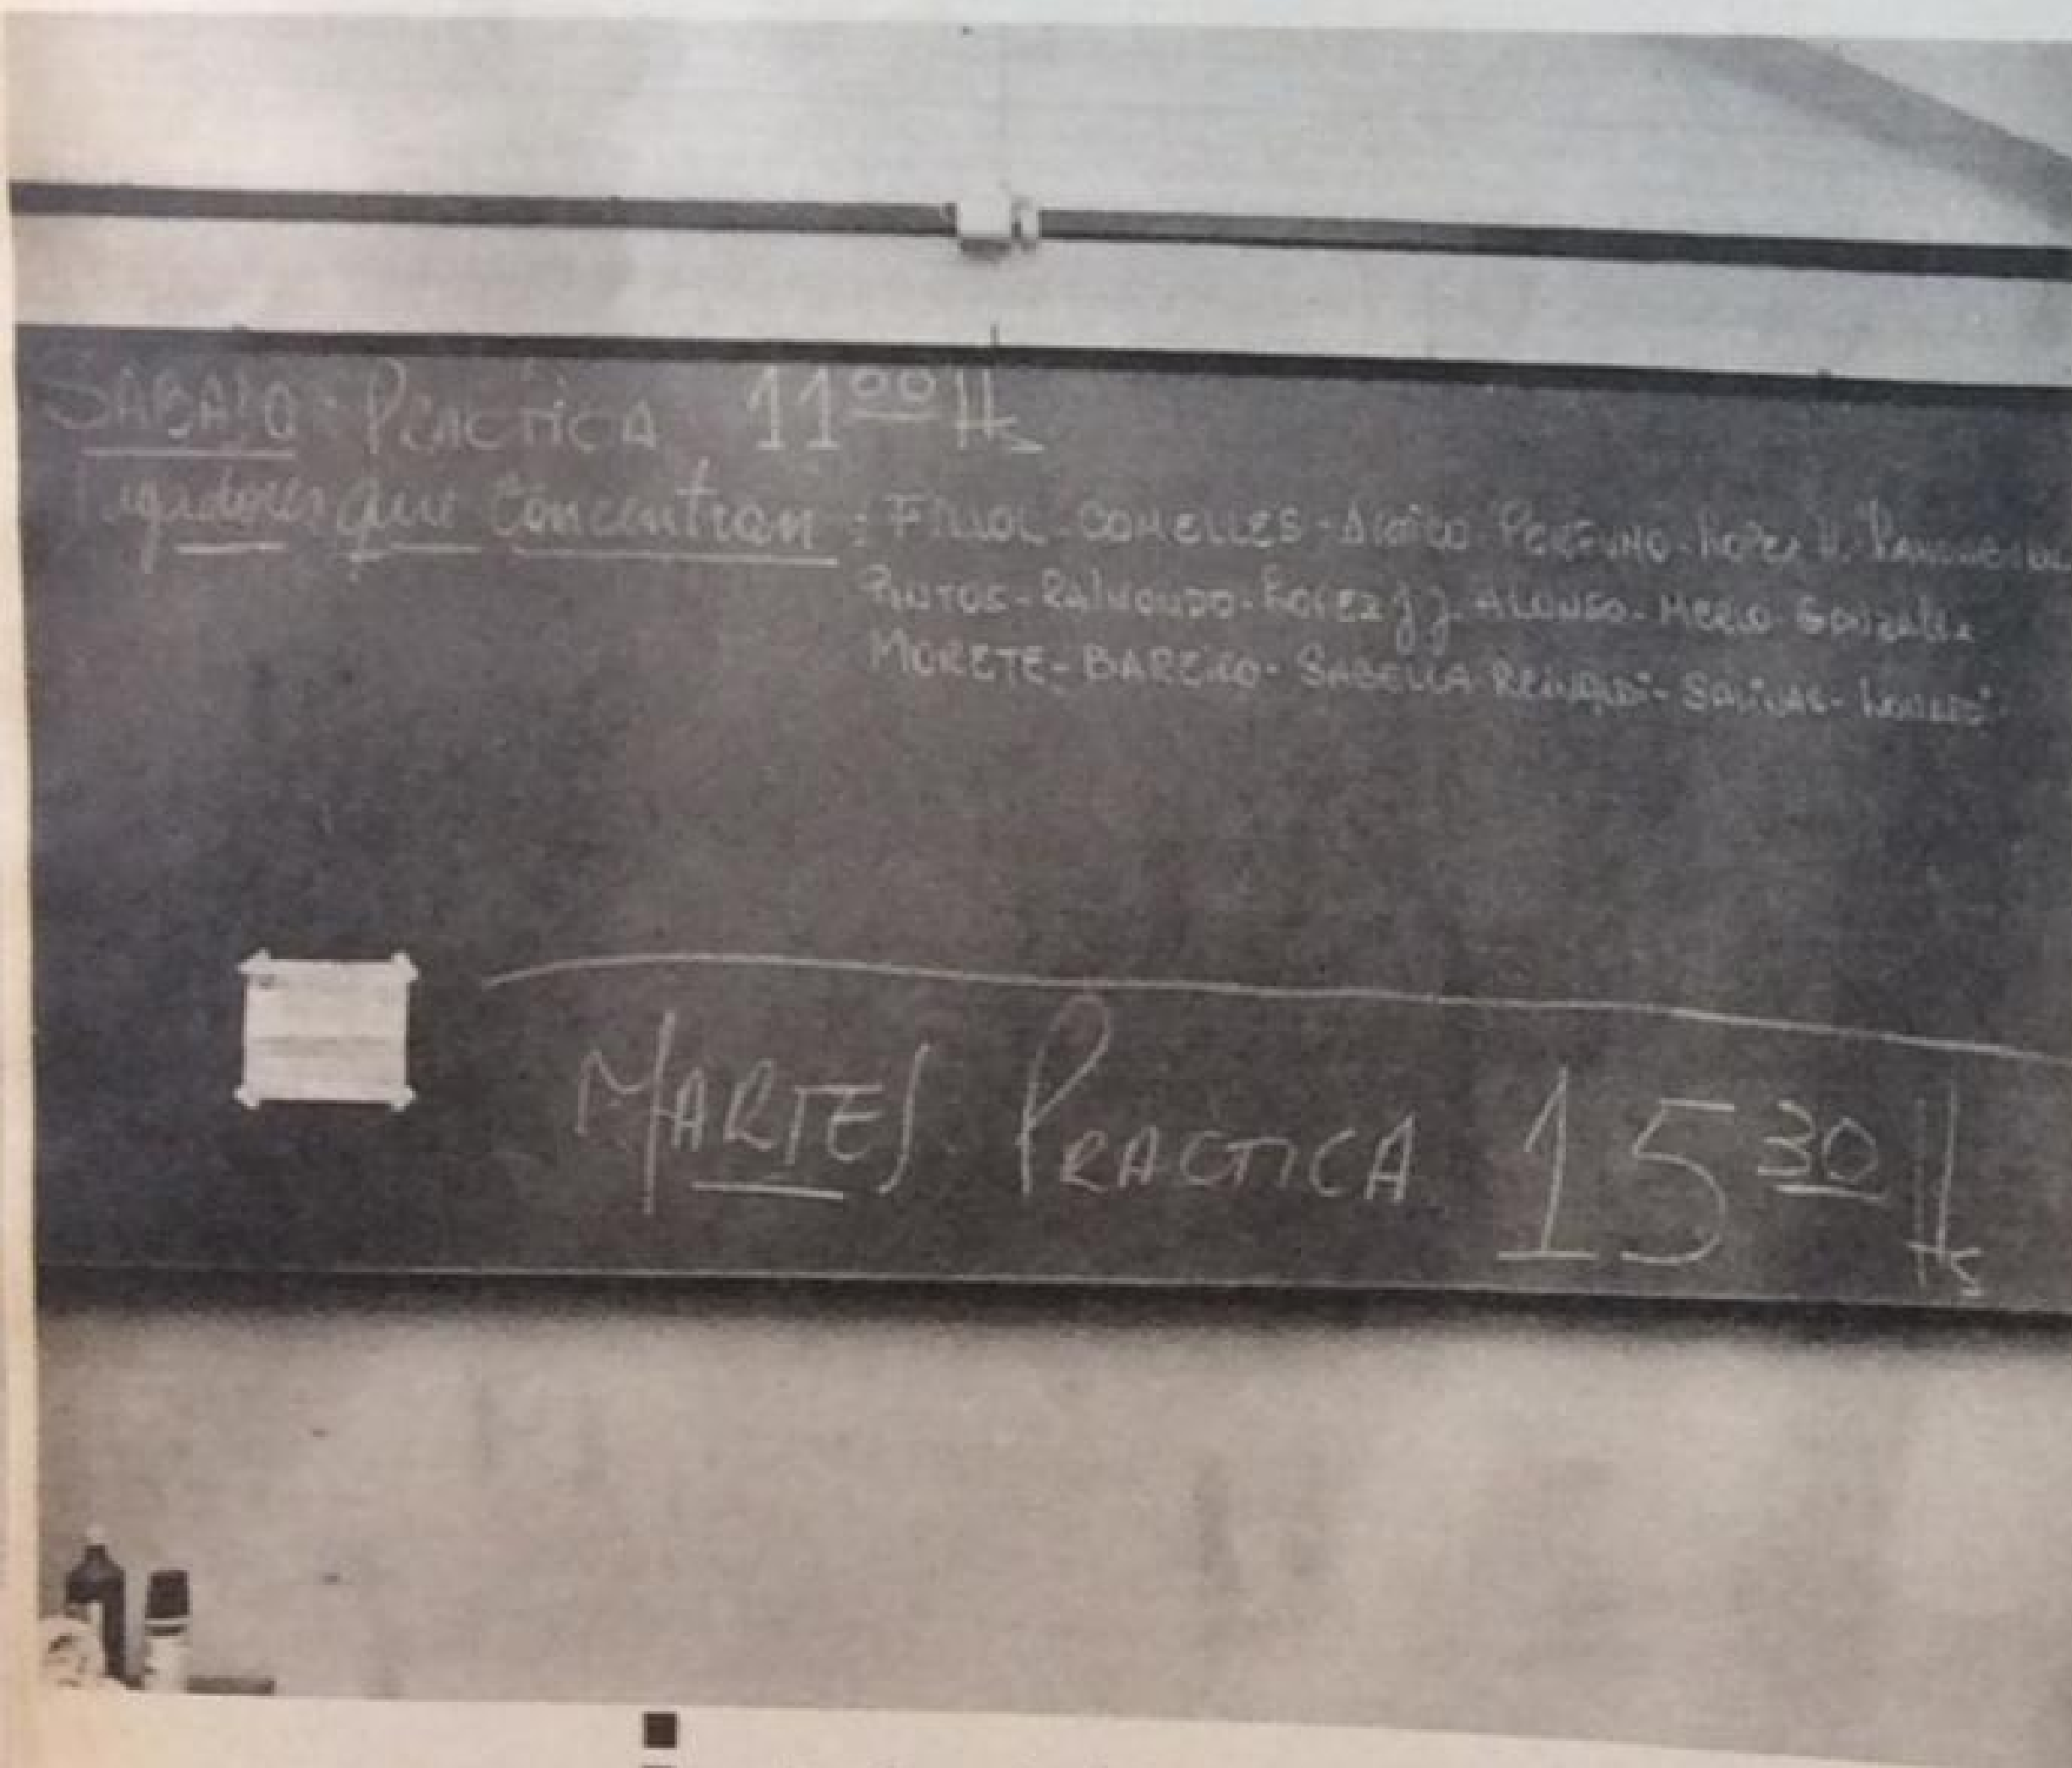 SABADO - PRACTICA 11 00 Hs
Jugadores que Concentran : FILLOL - COMELLES - ARTICO PERFUMO - LOPEZ H.
PINTOS - RAIMONDO - LOPEZ J J. ALONSO - MERLO GONZALEZ
MORETE - BAREIRO - SABELLA REINALDI - SALINAS -
MARTES. PRACTICA 15 30 Hs